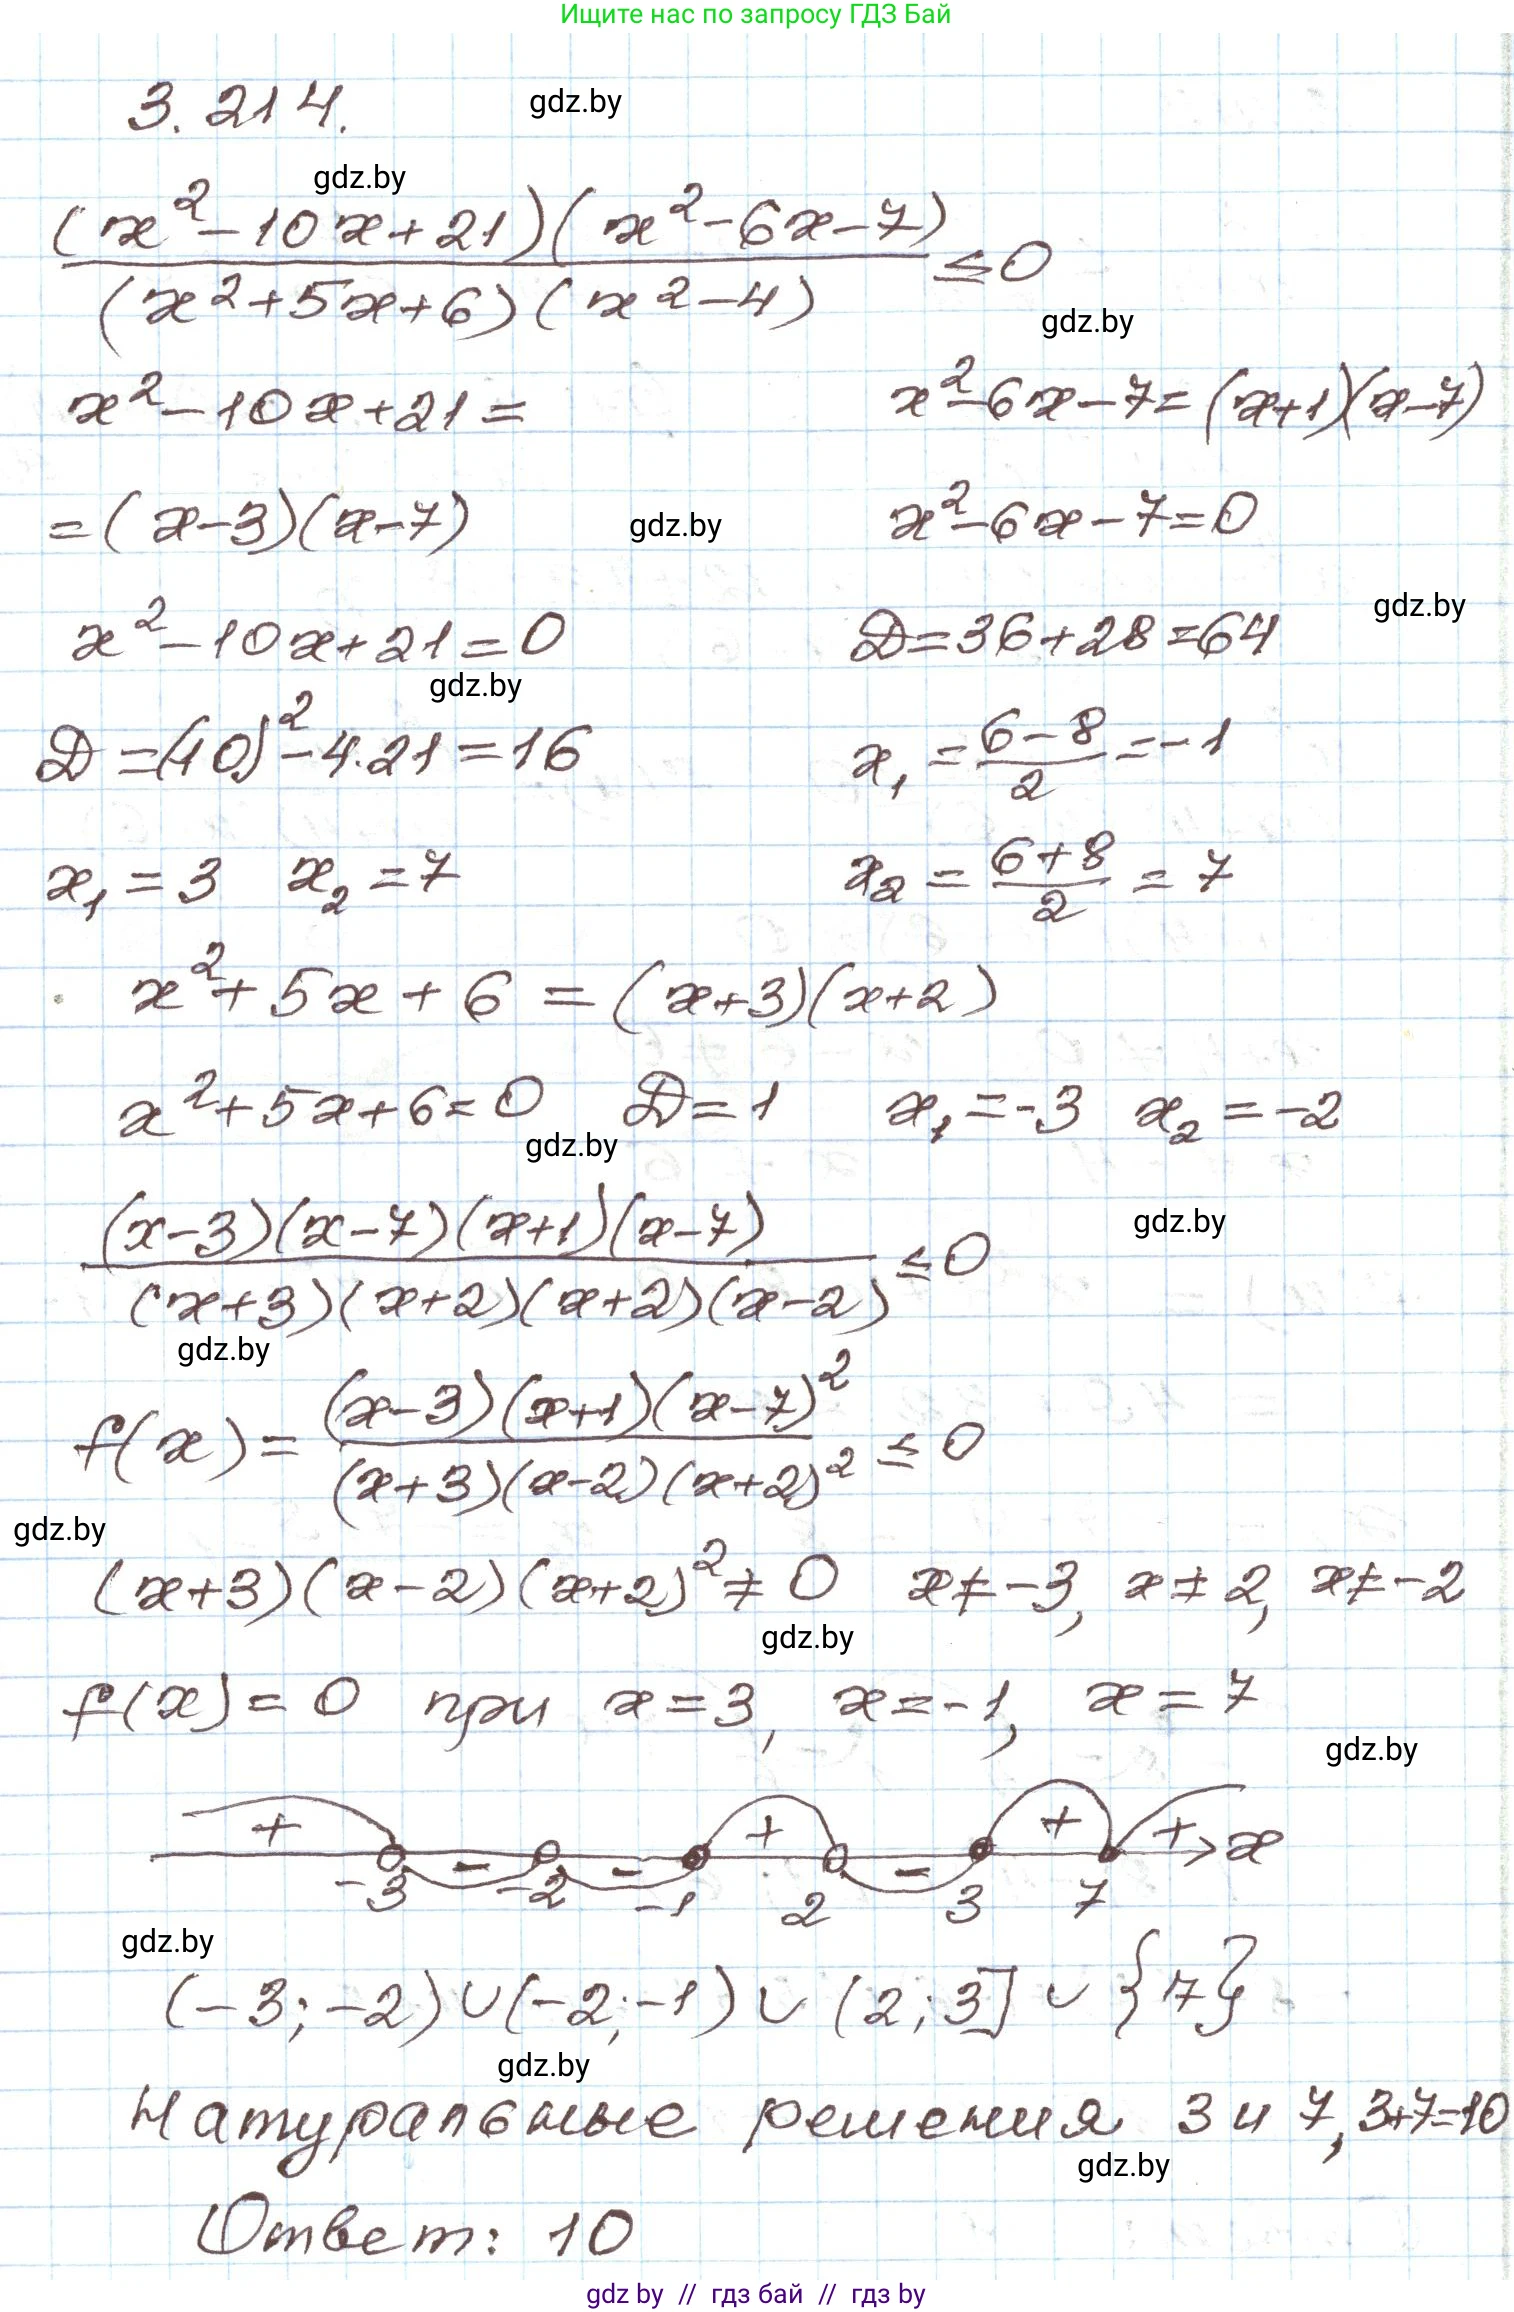 Ищите нас по запросу ГДЗ Бай
3.214.
gdz.by
gdz.by
(x²-10x+21)(x²-6x-7)
/(x²+5x+6)(x²-4) ≤0
gdz.by
x²-10x+21= x²-6x-7=(x+1)(x-7)
=(x-3)(x-7) gdz.by x²-6x-7=0
gdz.by
x²-10x+21=0 D=36+28=64
gdz.by
D=(10)²-4·21=16 x₁=(6-8)/2=-1
x₁=3 x₂=7 x₂=(6+8)/2=7
x²+5x+6=(x+3)(x+2)
x²+5x+6=0 D=1 x₁=-3 x₂=-2
gdz.by
(x-3)(x-7)(x+1)(x-7)/(x+3)(x+2)(x+2)(x-2) ≤0
gdz.by
gdz.by
f(x)=(x-3)(x+1)(x-7)²/(x+3)(x-2)(x+2)² ≤0
gdz.by
(x+3)(x-2)(x+2)²≠0 x≠-3, x≠2, x≠-2
gdz.by
f(x)=0 при x=3, x=-1, x=7
gdz.by
+ - - + - + + x
-3 -2 -1 2 3 7
gdz.by
(-3;-2)∪(-2;-1)∪(2;3]∪{7}
gdz.by
Натуральные решения 3 и 7, 3+7=10
gdz.by
Ответ: 10
gdz by // гдз бай // гдз by